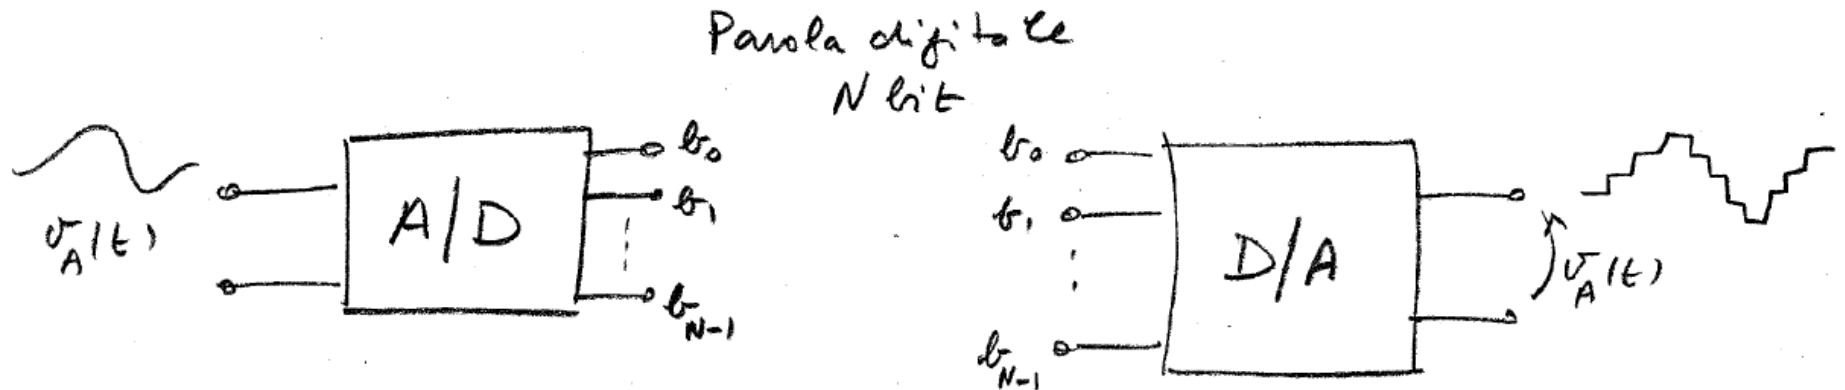 Parola digitale
N bit
v_A(t)
A/D
b_0
b_1
b_{N-1}
b_0
b_1
b_{N-1}
D/A
v_A(t)